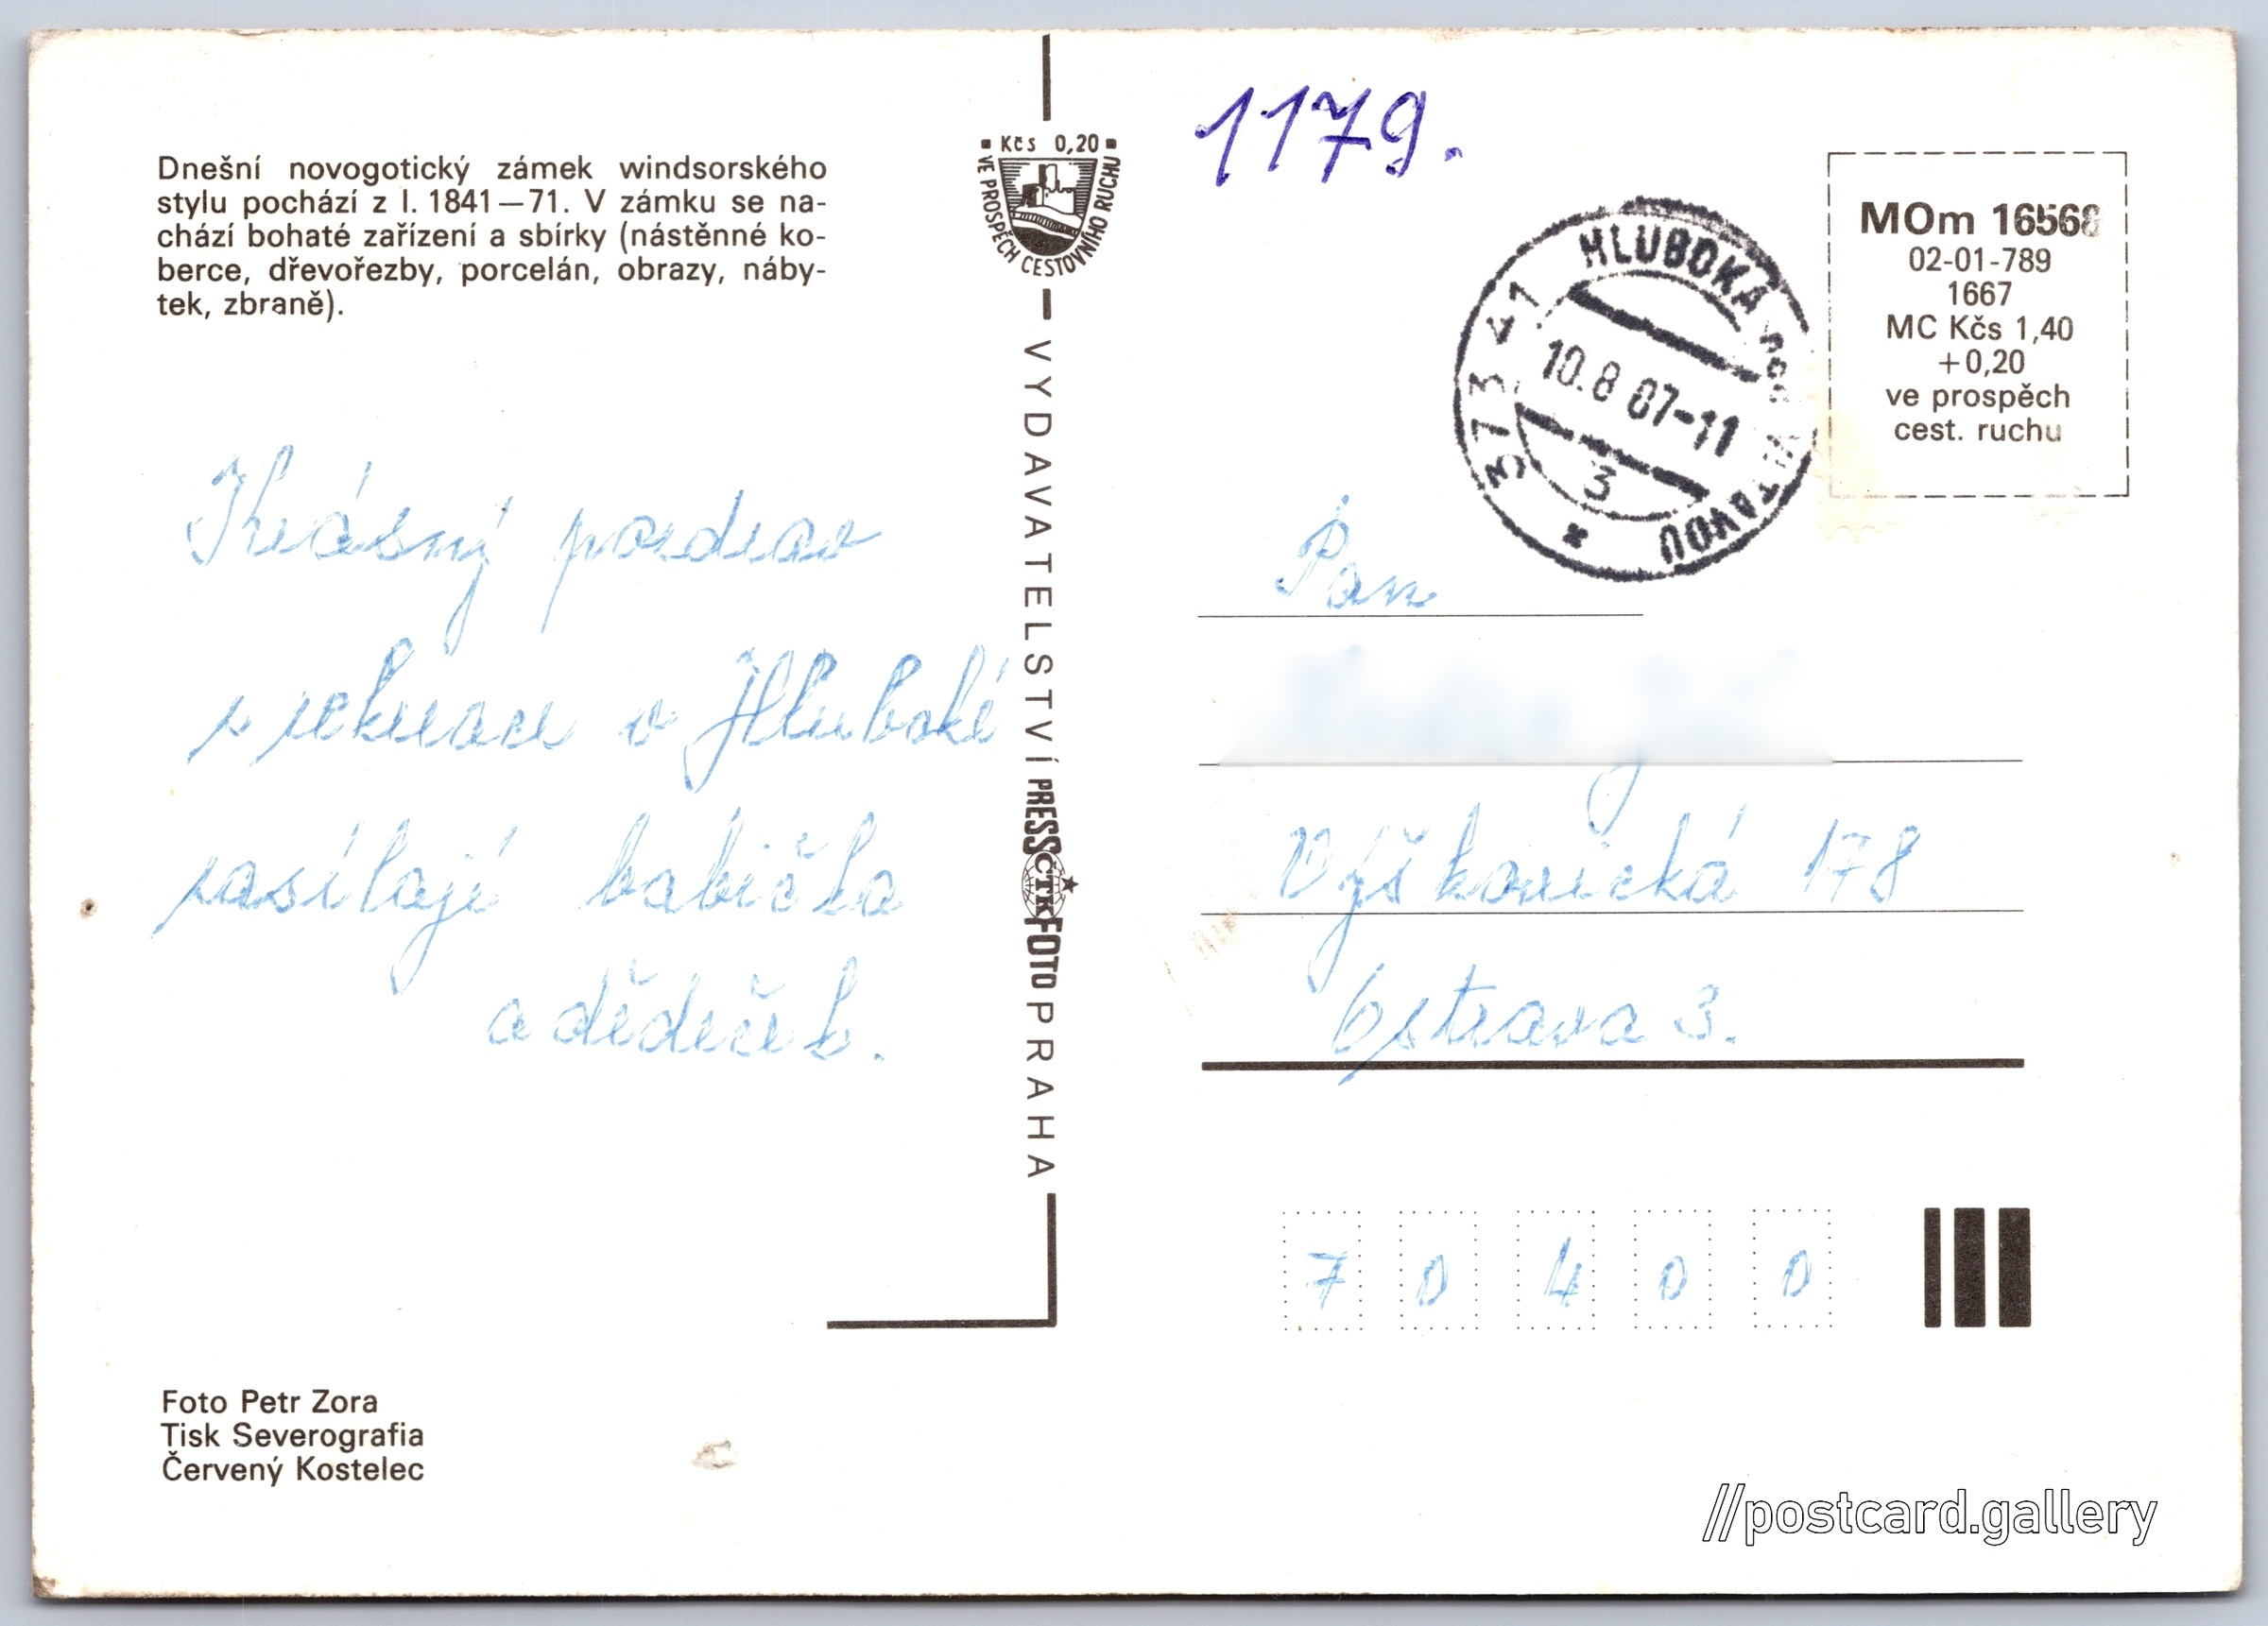 Dnešní novogotický zámek windsorského
stylu pochází z l. 1841—71. V zámku se na-
chází bohaté zařízení a sbírky (nástěnné ko-
berce, dřevořezby, porcelán, obrazy, náby-
tek, zbraně).
Krásný pozdrav
z rekreace v Hluboké
zasílají babička
a dědeček.
Foto Petr Zora
Tisk Severografia
Červený Kostelec
Kčs 0,20
VE PROSPĚCH CESTOVNÍHO RUCHU
VYDAVATELSTVÍ PRESSFOTO PRAHA
ČTK
1179.
373 41 HLUBOKÁ POD VLTAVOU
10.8 87-11
3
*
MOm 16568
02-01-789
1667
MC Kčs 1,40
+0,20
ve prospěch
cest. ruchu
Pan
Výškovická 178
Ostrava 3.
7 0 4 0 0
//postcard.gallery